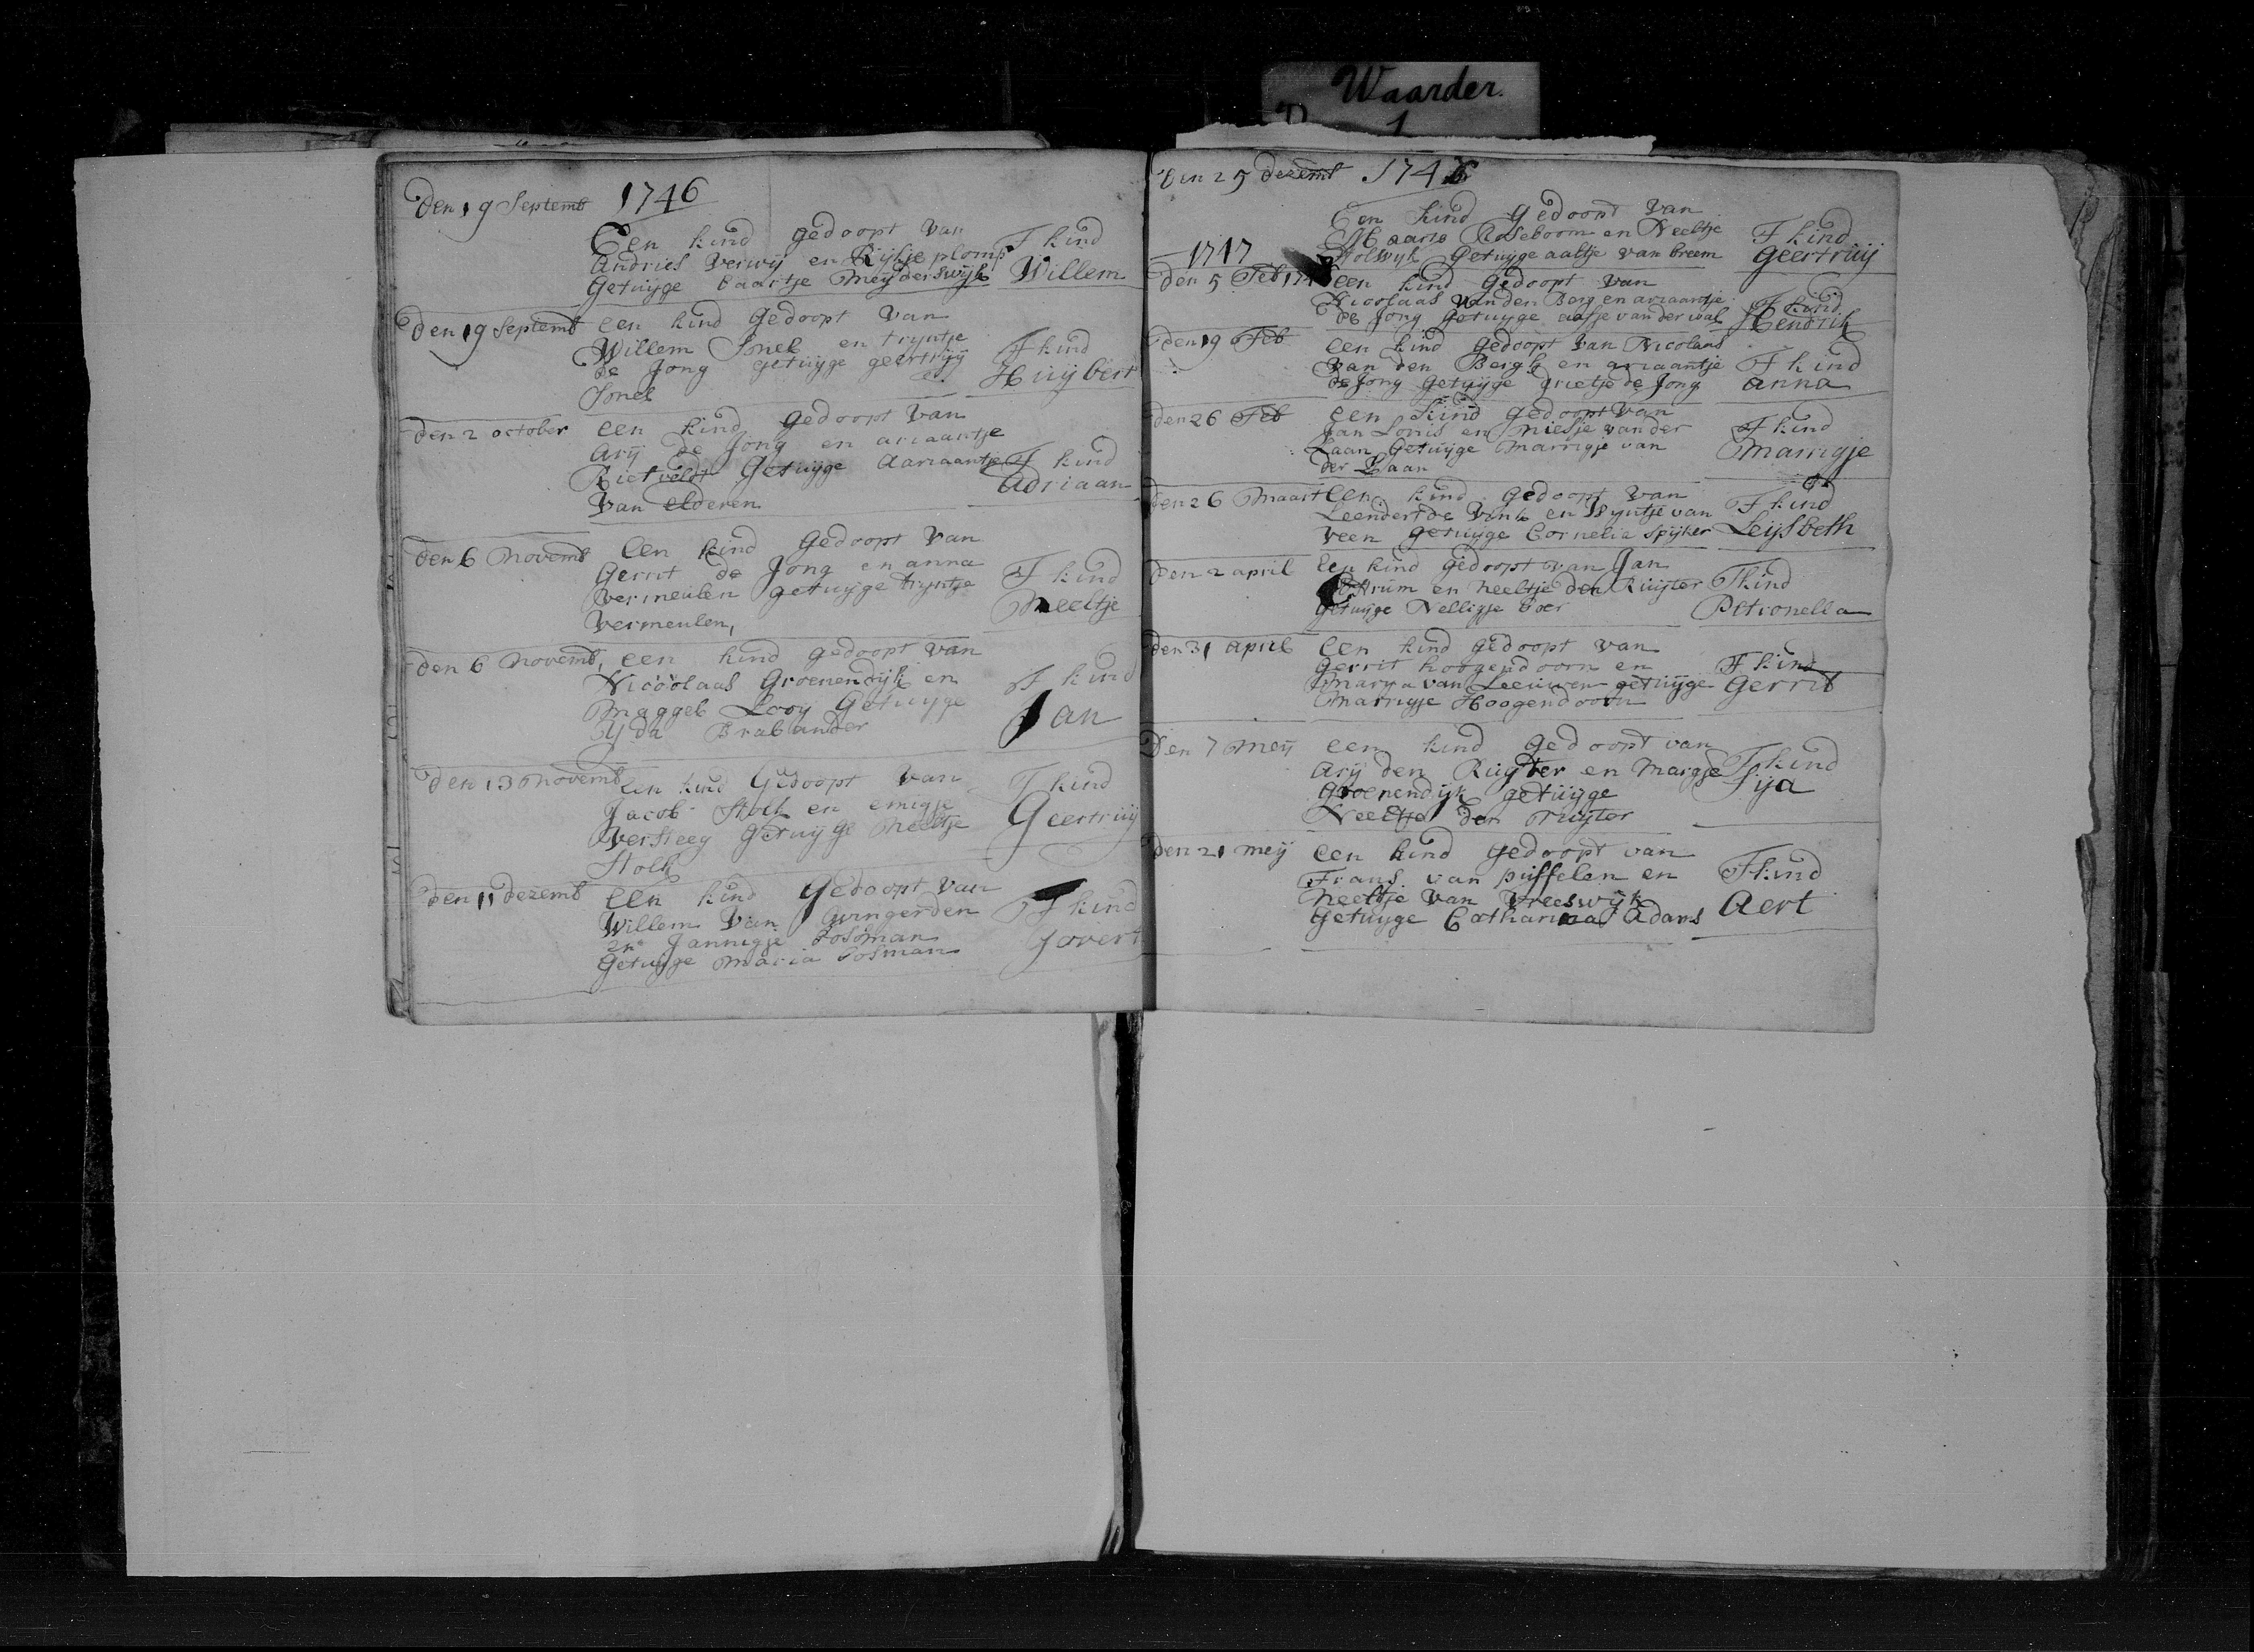 Waarder.
1
1746
Den 19 Septemb
Een kind gedoopt van
Andries Verwij en Rijkje plomp
getuijge baartje Meijderswijk
T kind
Willem
Den 19 Septemb een kind gedoopt van
Willem Sonck en trijntje
de Jong getuijge geertrijij
Sonck
T kind
Huijbert
Den 2 october een kind gedoopt van
Arij de Jong en ariaantje
Rietveldt Getuijge Aariaantje
van elderen
T kind
Adriaan
Den 6 Novemb Een kind gedoopt van
Gerrit de Jong en anna
vermeulen getuijge trijntje
vermeulen,
T kind
Neeltje
Den 6 Novemb, een kind gedoopt van
Nicoolaas Groenendijk en
Maggel Looy Getuijge
Yda Brabander
T kind
Jan
Den 13 Novemb Een kind Gedoopt van
Jacob Stolk en emigje
versteeg Getuijge Neeltje
Stolk
T kind
Geertruij
Den 11 dezemb een kind Gedoopt van
Willem van wingerden
en Jannigje Bosman
Getuijge Maria Bosman
T kind
Jovert
Den 25 dezemb 1746
Een kind gedoopt van
Maarte Roseboom en Neeltje
Holswijk getuijge aaltje van breem
T kind
Geertruij
1747
Den 5 Feb 174 een kind gedoopt van
Nicolaas van den Berg en ariaantje
de Jong Getuijge aafje van der wal
T kind
Hendrik
Den 19 Feb een kind gedoopt van Nicolaas
van den Bergh en ariaantje
de Jong getuijge grietje de Jong
T kind
anna
Den 26 Feb een kind gedoopt van
Jan Lonis en Niesje van der
Laan getuijge Marrigje van
der Laan
T kind
Marrigje
Den 26 Maart Een kind gedoopt van
Leendert de Vink en Wijntje van
veen getuijge Cornelia Spijker
T kind
Leijsbeth
Den 2 april Een kind gedoopt van Jan
en Neeltje den Ruijter
getuijge Nelligje boer
T kind
Petronella
Den 31 april een kind gedoopt van
Gerrit hoogendoorn en
Marya van Leeuwen getuijge
Marrigje Hoogendoorn
T kind
Gerrit
Den 7 Meij een kind gedoopt van
Arij den Ruijter en Margje
Groenendijk getuijge
Neeltje den ruijter
T kind
Sija
Den 21 meij een kind gedoopt van
Frans van puffelen en
Neeltje van Vreeswijk
getuijge Catharina Adams
T kind
Aert